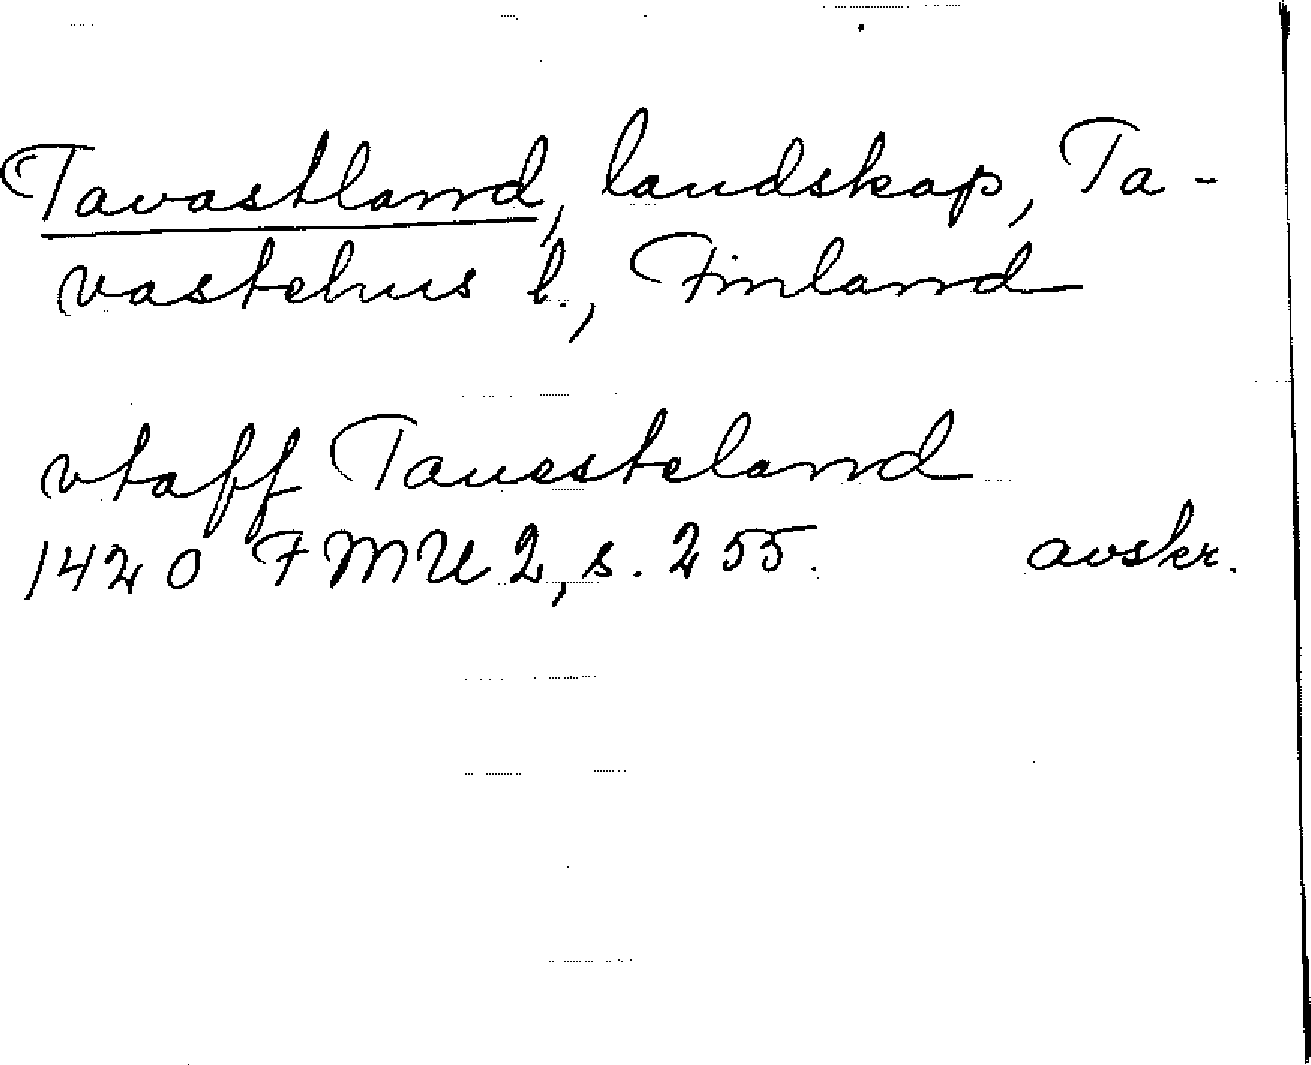 Tavastland, landskap, Ta-
vastehus l., Finland
vtaff Tauesteland
1420 FMU 2, s. 255. avskr.